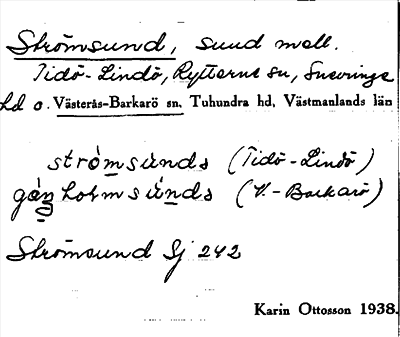 Strömsund, sund mell.
Tidö-Lindö, Rytterne sn, Snevringe
hd o. Västerås-Barkarö sn, Tuhundra hd, Västmanlands län
strömsúnds (Tidö-Lindö)
holmsúnds (V.-Barkarö)
Strömsund Sj 242
Karin Ottosson 1938.